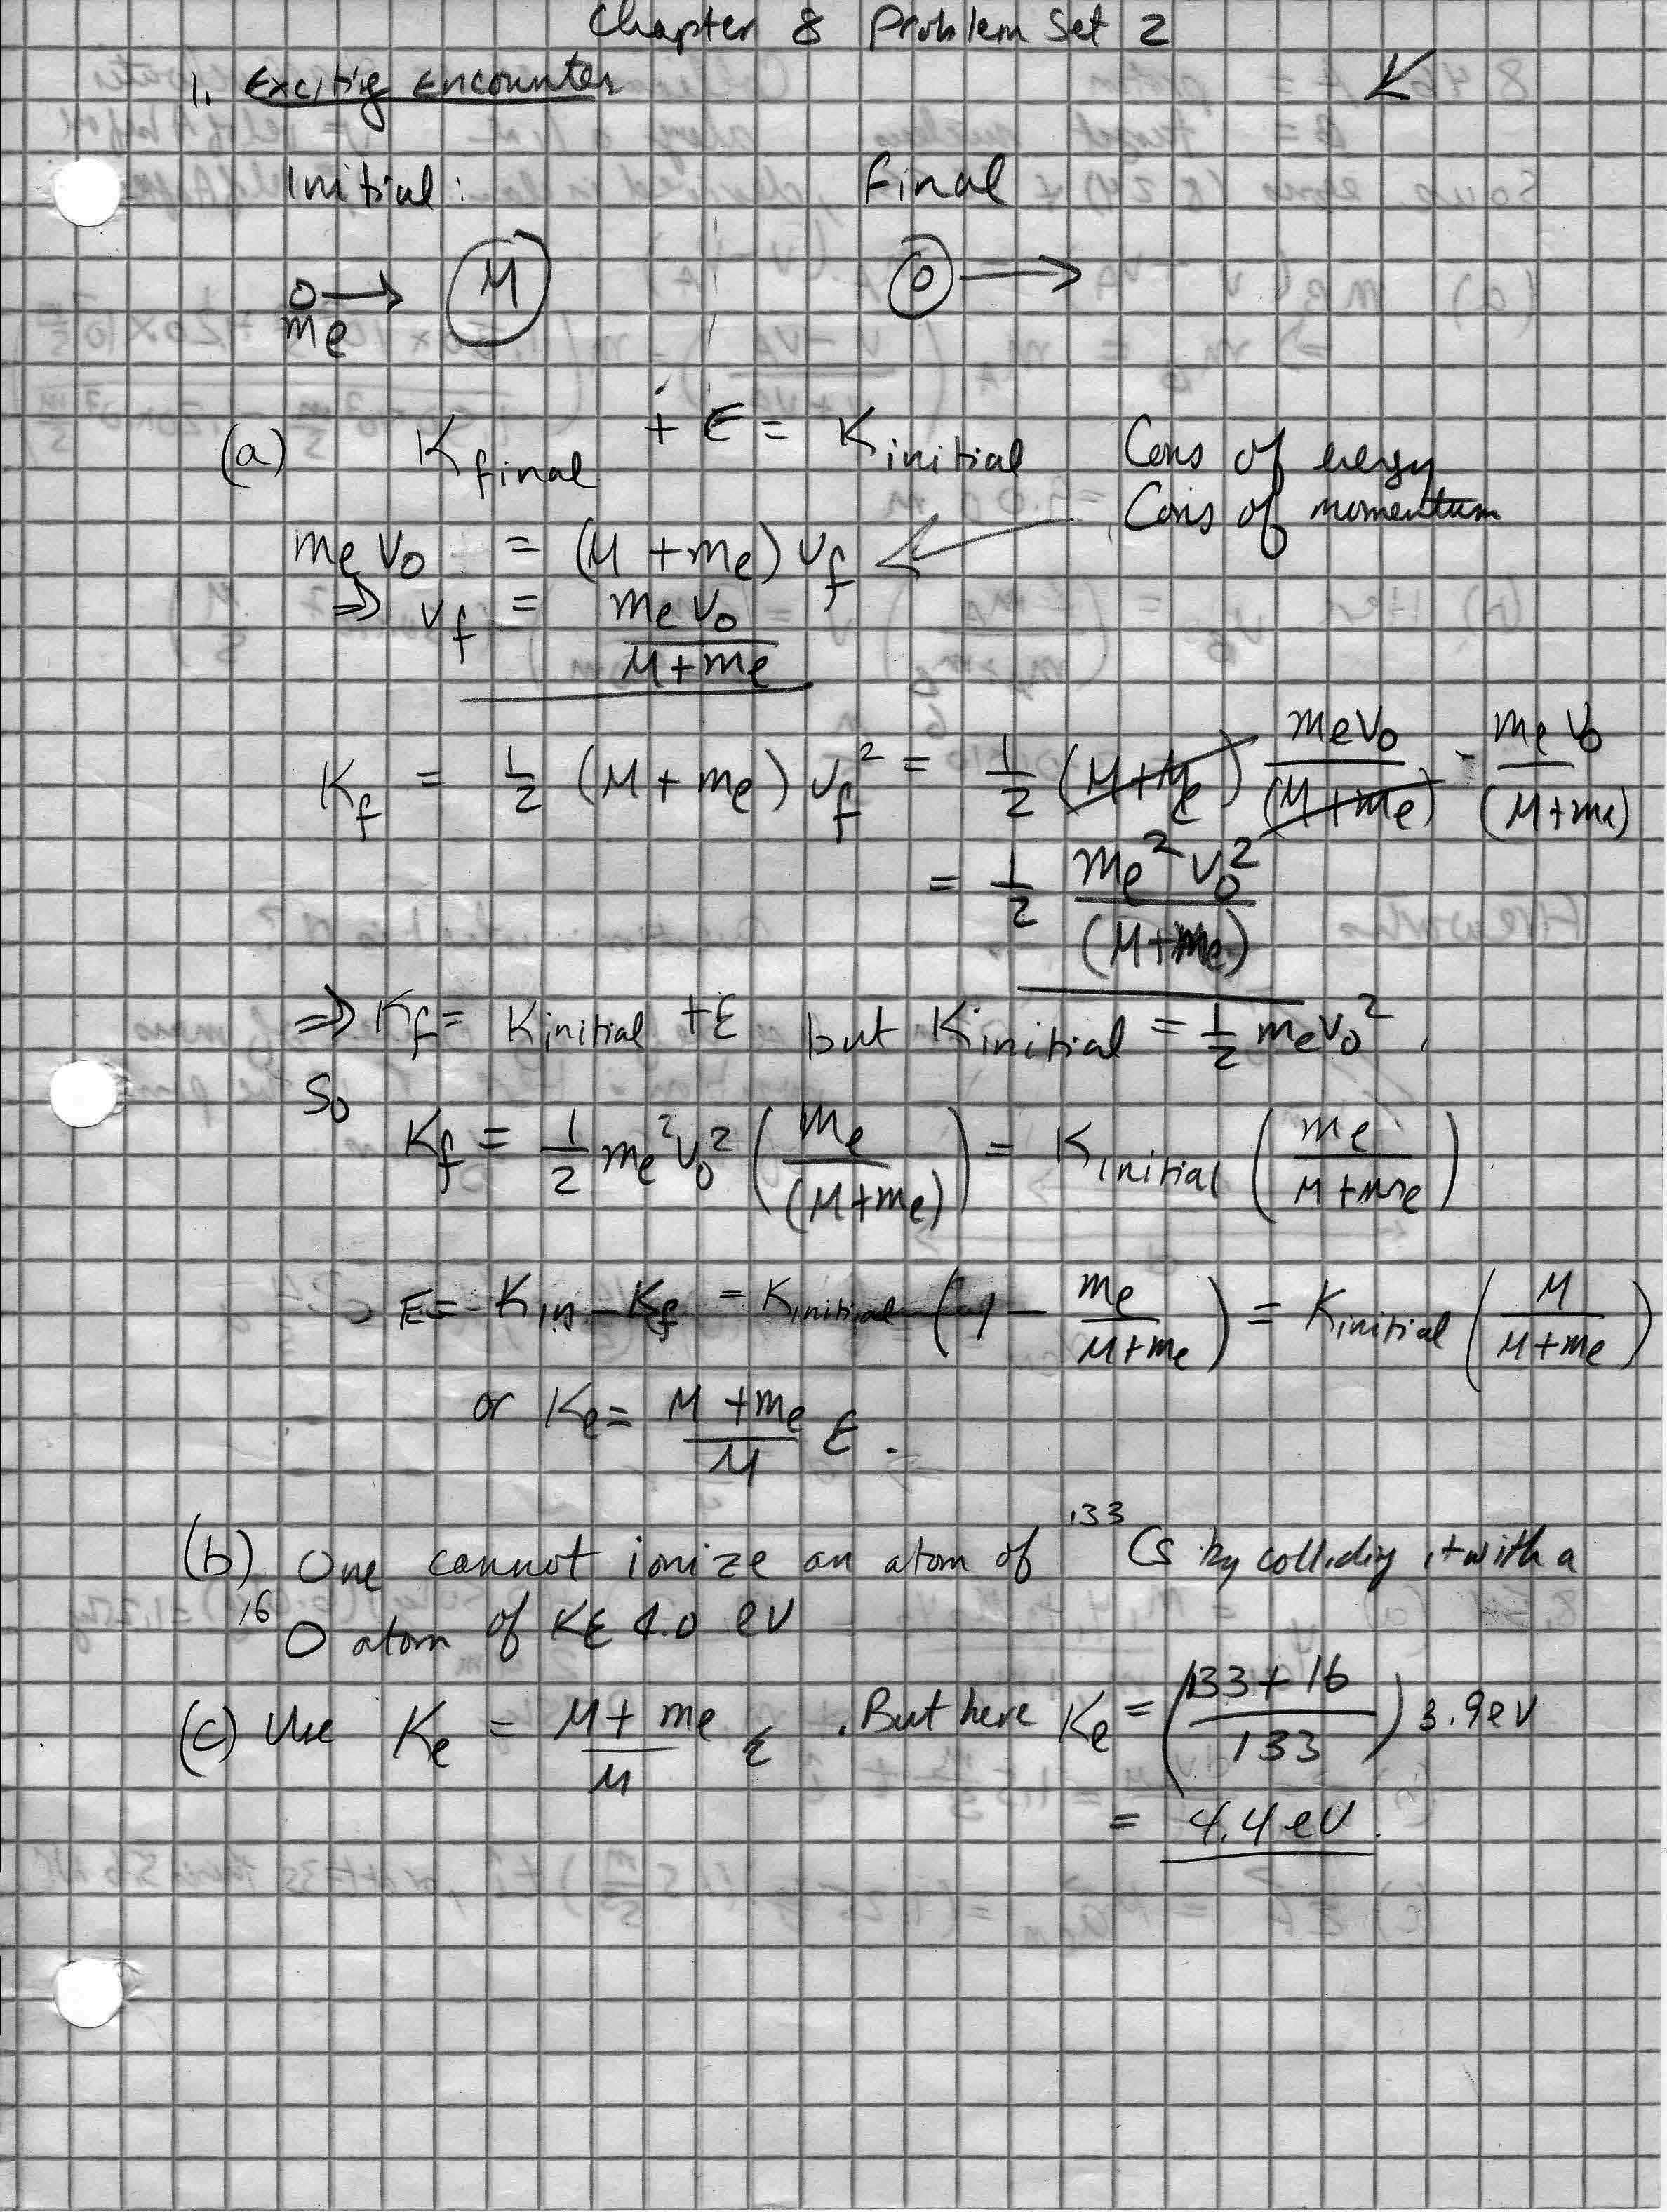 Chapter 8 Problem Set 2
1. Exciting Encounter
Initial: Final
me → M O →
(a) K final + E = K initial Cons of energy
Cons of momentum
me v0 = (M + me) vf
⇒ vf = me v0 / (M + me)
Kf = 1/2 (M + me) vf² = 1/2 (M + me) me v0 / (M + me) · me v0 / (M + me)
= 1/2 me² v0² / (M + me)
⇒ Kf = K initial + E but K initial = 1/2 me v0²,
So
Kf = 1/2 me² v0² (me / (M + me)) = K initial (me / (M + me)).
E = Kin − Kf = K initial (1 − me / (M + me)) = K initial (M / (M + me))
or Ke = (M + me) / M E.
(b) One cannot ionize an atom of ¹³³Cs by colliding it with a
¹⁶O atom of KE 4.0 eV
(c) Use Ke = (M + me) / M E. But here Ke = ((133 + 16) / 133) 3.9 eV
= 4.4 eV.